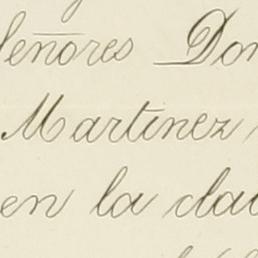 Señores Don
Martinez
en la